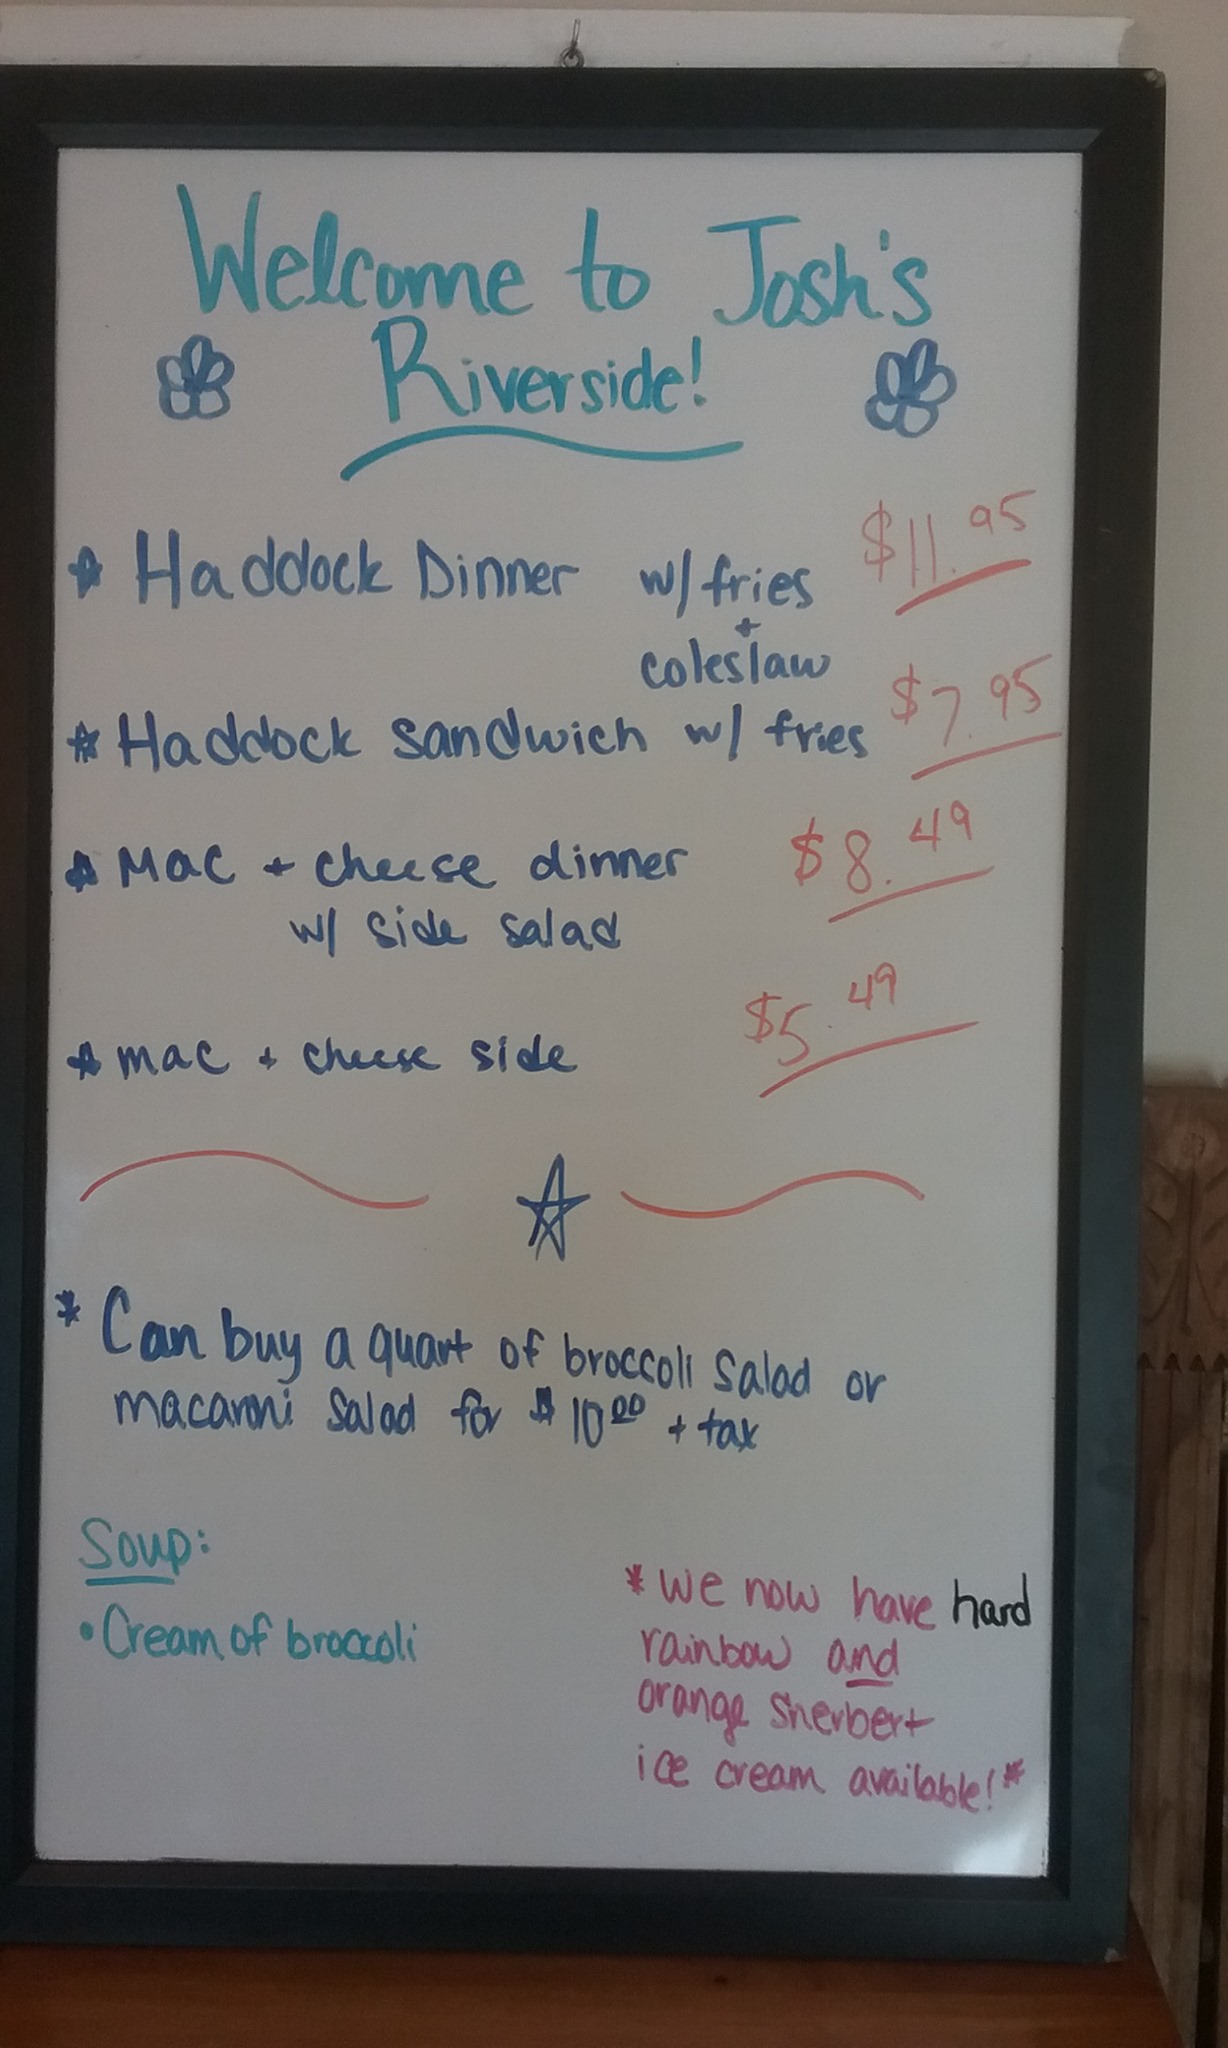 Welcome to Josh's
Riverside!
Haddock Dinner w/ fries $11.95
+
coleslaw
Haddock sandwich w/ fries $7.95
Mac + cheese dinner $8.49
w/ side salad
mac + cheese side $5.49
* Can buy a quart of broccoli salad or
macaroni salad for $10.00 + tax
Soup:
• Cream of broccoli
* we now have hard
rainbow and
orange sherbert
ice cream available! *